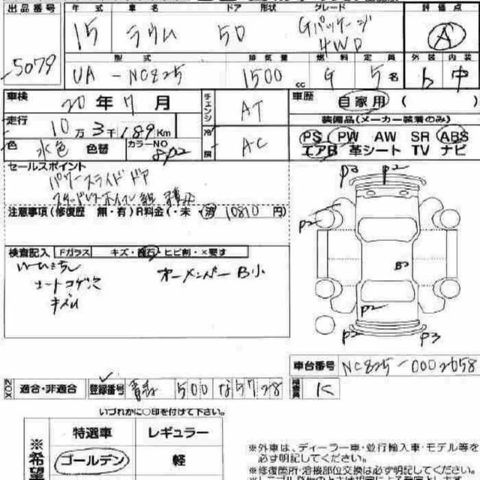 出品番号 年式 車名 ドア 形状 グレード 評価点
15 ラウム 5D Gパッケージ A
4WD
5079 型式 排気量 燃料 定員 外装 内装
UA-NC825 1500 cc G 5 名 b 中
車検 20年 7月 チェンジ AT 車歴 自家用 ( )
走行 10万3千189Km 冷房 AC 装備品(メーカー装着のみ)
色 水色 色替 カラーNO 8P2 PS PW AW SR ABS
エアB 革シート TV ナビ
セールスポイント
パワースライドドア
注意事項(修復歴 無・有)R料金(・未・済 10810円)
検査記入 Fガラス キズ・飛石・ヒビ割・×要す
オーメンパー B小
コートコゲ穴
キズ小
P3 P2
P2
B2
P2
P2 P3
車台番号 NC825-0002658
適合・非適合 登録番号 500 な 5728 検査員 K
いづれかに○印を付けて下さい。
※希望 特選車 レギュラー
ゴールデン 軽
※外車は、ディーラー車・並行輸入車・モデル等を
必ず明記してください。
※修復箇所・溶接部位交換は必ず明記してください。